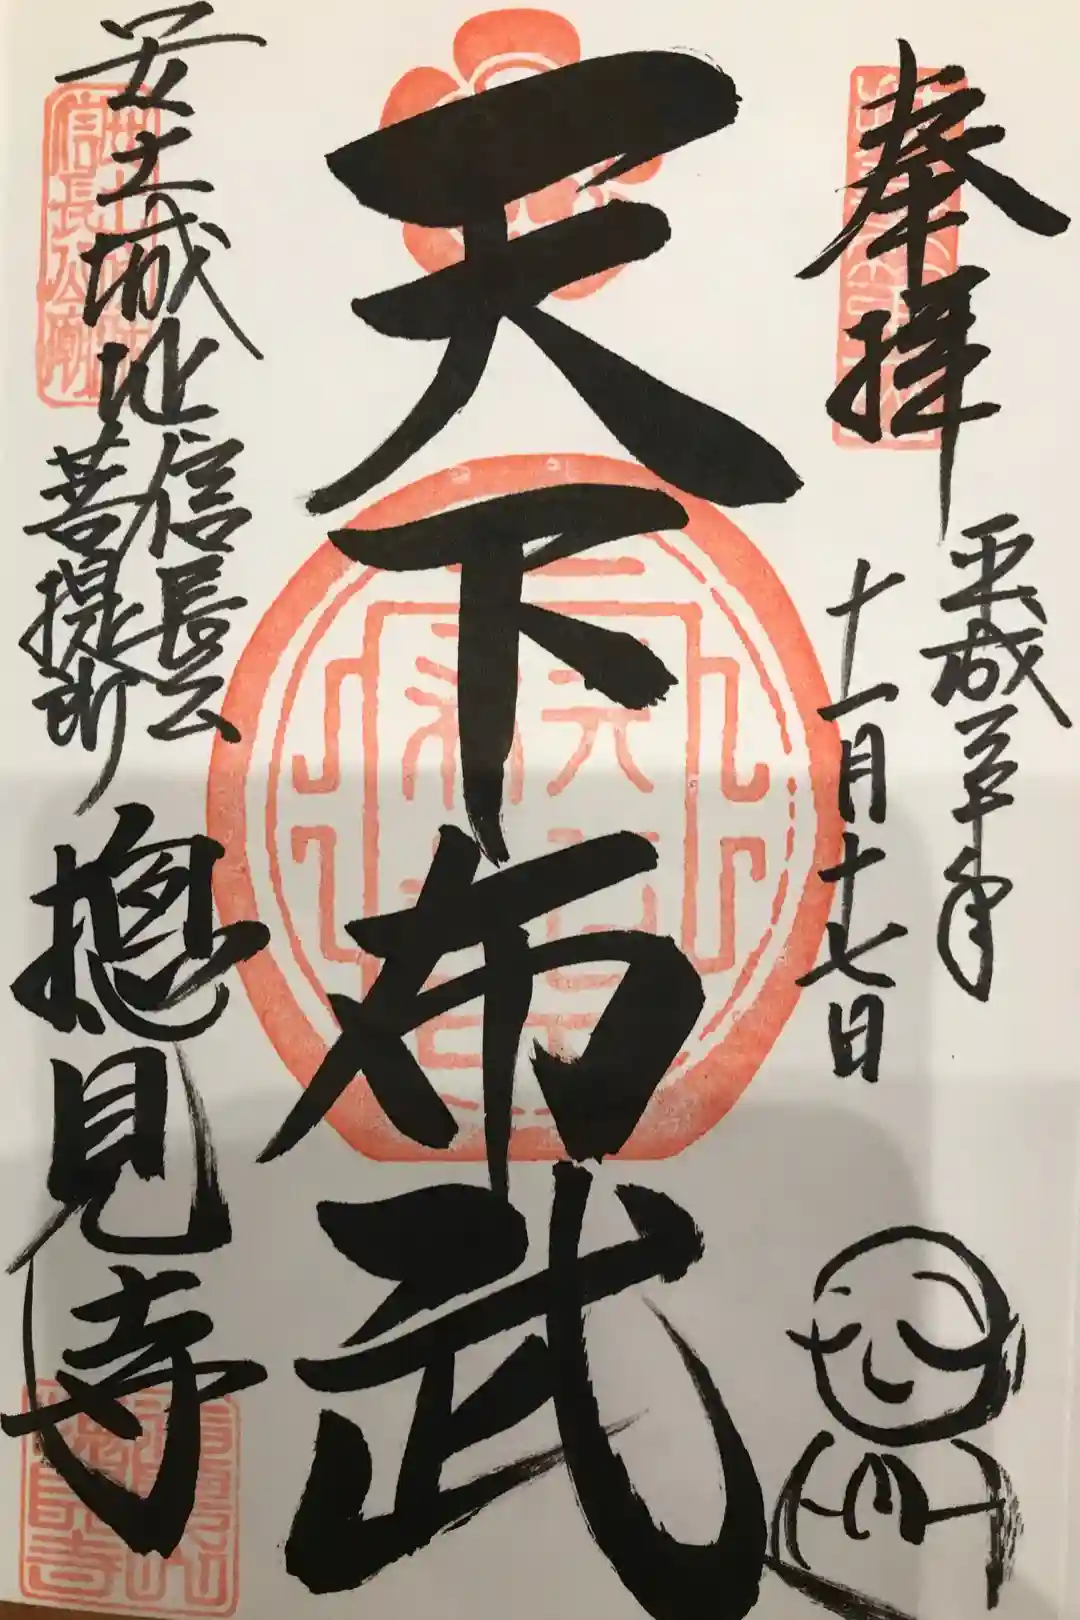 奉拝
平成三十年
十一月十七日
天下布武
安土城址
信長公
菩提所
摠見寺
信長公廟